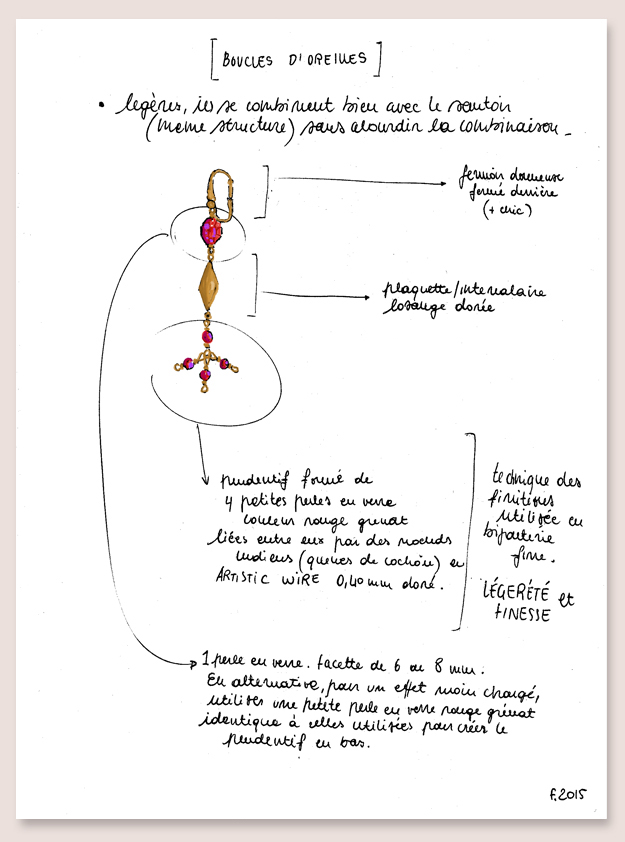 [BOUCLES D'OREILLES]
• légères, ils se combinent bien avec le sautoir
(même structure) sans alourdir la combinaison.
fermoir dormeuse
fermé derrière
(+ chic)
plaquette/intercalaire
losange dorée
pendentif formé de
4 petites perles en verre
couleur rouge grenat
liées entre eux par des noeuds
indiens (queues de cochon) en
ARTISTIC WIRE 0,40 mm doré.
technique des
finitions
utilisée en
bijouterie
fine.
LÉGERÉTÉ et
FINESSE
1 perle en verre. facette de 6 ou 8 mm.
En alternative, pour un effet moin chargé,
utiliser une petite perle en verre rouge grénat
identique à celles utilisées pour créer le
pendentif en bas.
F.2015